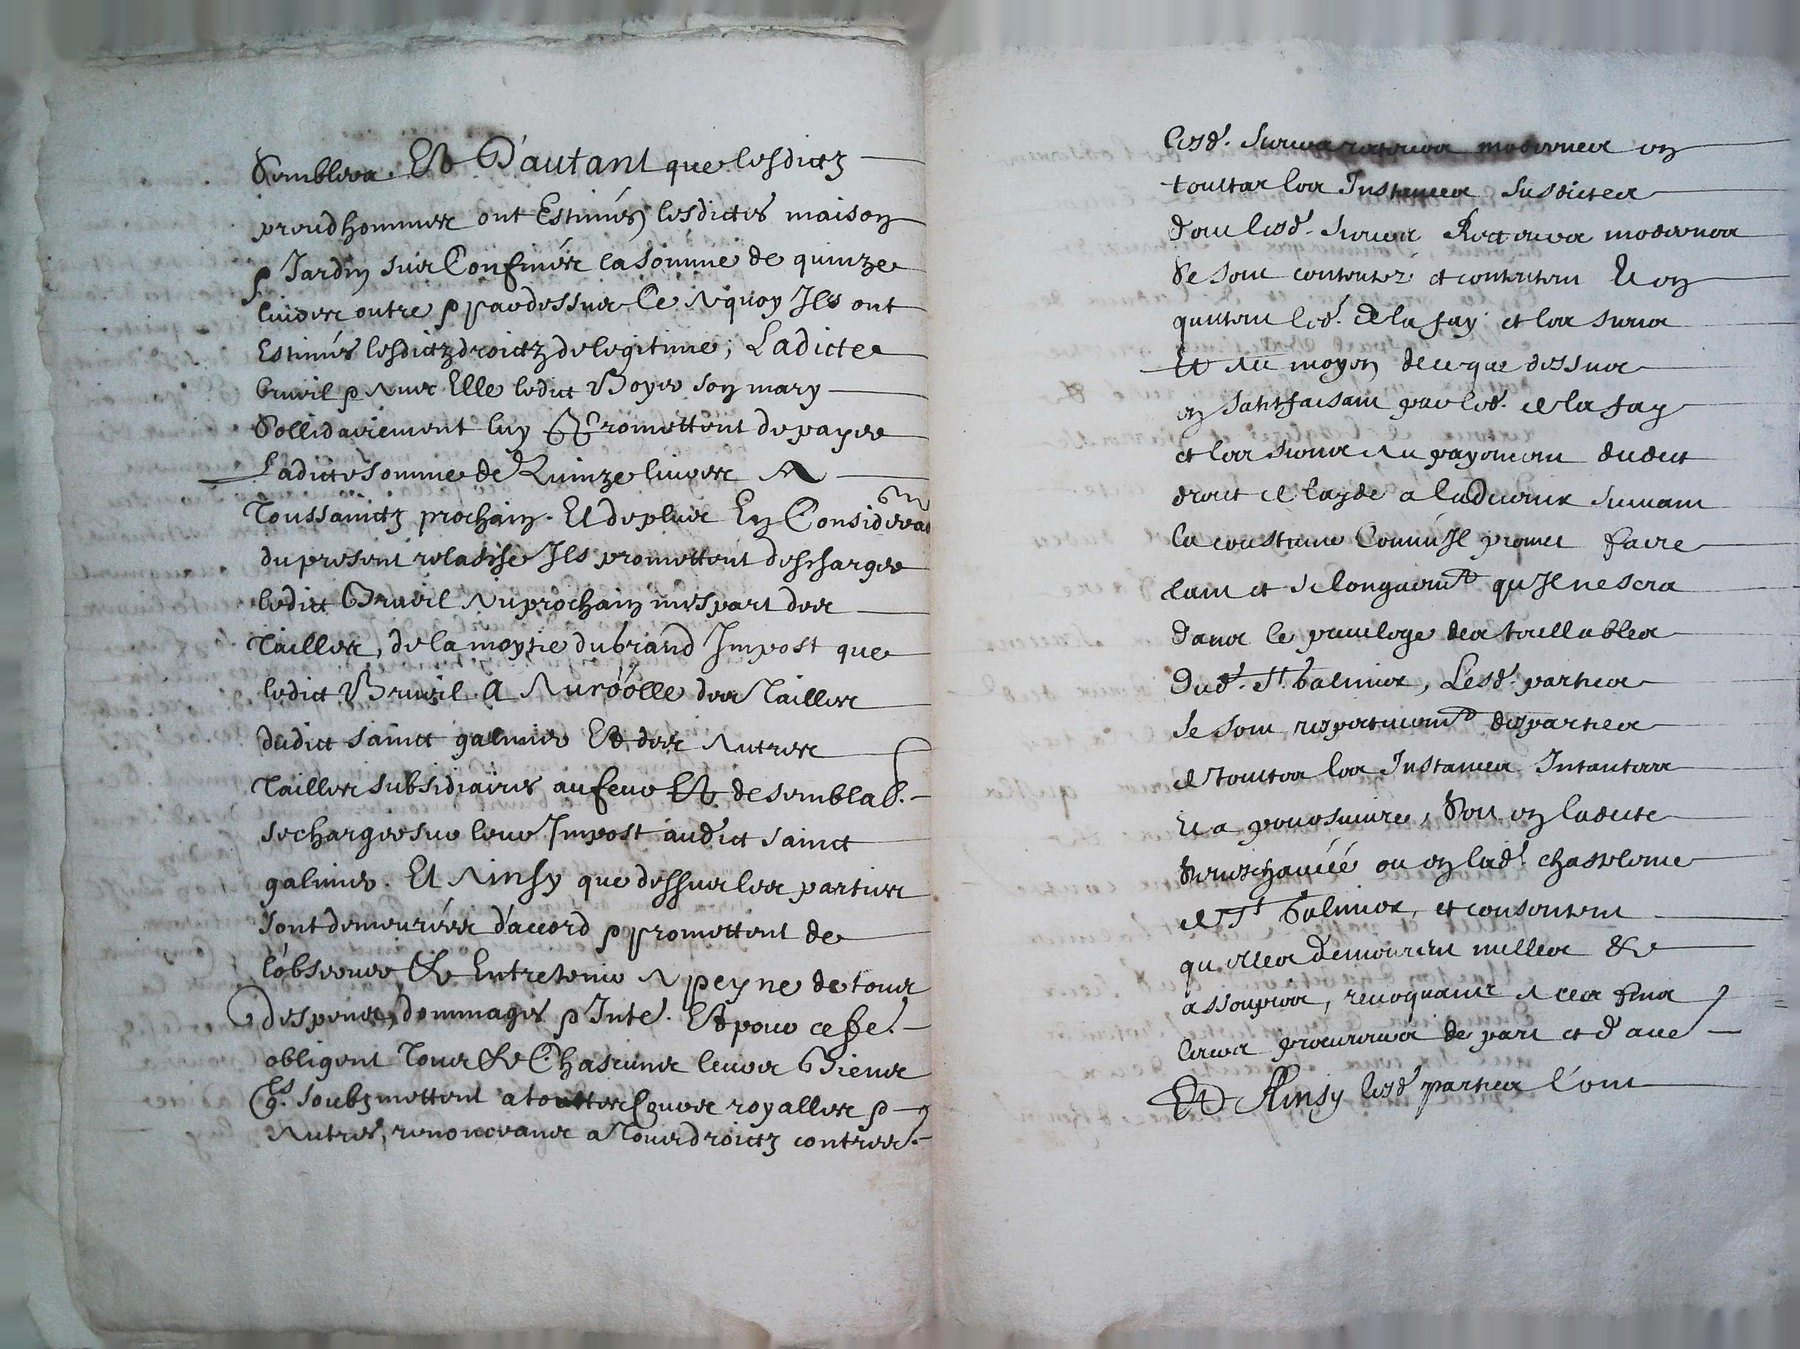 Semblera Et D'autant que lesdictz
preudhommes ont Estimés lesdictes maison
& Jardin sus Confinés la somme de quinze
livres outre & pardessus Ce A quoy Ils ont
Estimés lesdictz droictz de legitime, Ladicte
bruvil & Avec Elle ledict Boyer son mary
Sollidairement luy Promettent de payer
Ladicte somme de Quinze livres A
Toussainctz prochain. Et de plus En Considera(on)
du present relasche Ils promettent descharger
ledict Bruvil Au prochain mespart des
Tailles, de la moytie du grand Impost que
ledict Bruvil A Au roolle des Tailles
dudict sainct galmier Et des Autres
Tailles subsidiaires au feur Et de semblab.
se charger sur leur Impost audict sainct
galmier. Et Ainsy que dessus les parties
sont demeurées d'accord & promettent de
l'observer & Entretenir A peyne de tous
Despens, dommages & Inte. Et pour ce fe.
obligent Tous & Chascuns leurs Biens
Qs. soubzmettent a touttes Cours royalles &
Autres, renonceans a Tous droictz contres.
lesd. sieurs recteurs modernes en
touttes les Instances susdictes
dont lesd. sieurs Recteurs modernes
se sont contentés et contentent Et en
quittent led. de la fay et les siens
Et Au moyen de ce que dessus
en satisfaisant par led. de la fay
et les siens Au payement dudict
droict de layde a ladvenir suivant
la coustume Comme Il promet faire
tant et si longuement qu'Il ne sera
dans le privilege des taillables
dud. St. Galmier, Lesd. parties
se sont respectivement desparties
de touttes les Instances Intantees
Et a poursuivre, Soit en ladicte
Seneschaucée ou en lad. chastelenie
de St Galmier, et consentent
qu'elles demeurent nulles &
assoupies, revoquants A ces fins
leurs procureurs de part et d'aue
Et Ainsy lesd. parties l'ont